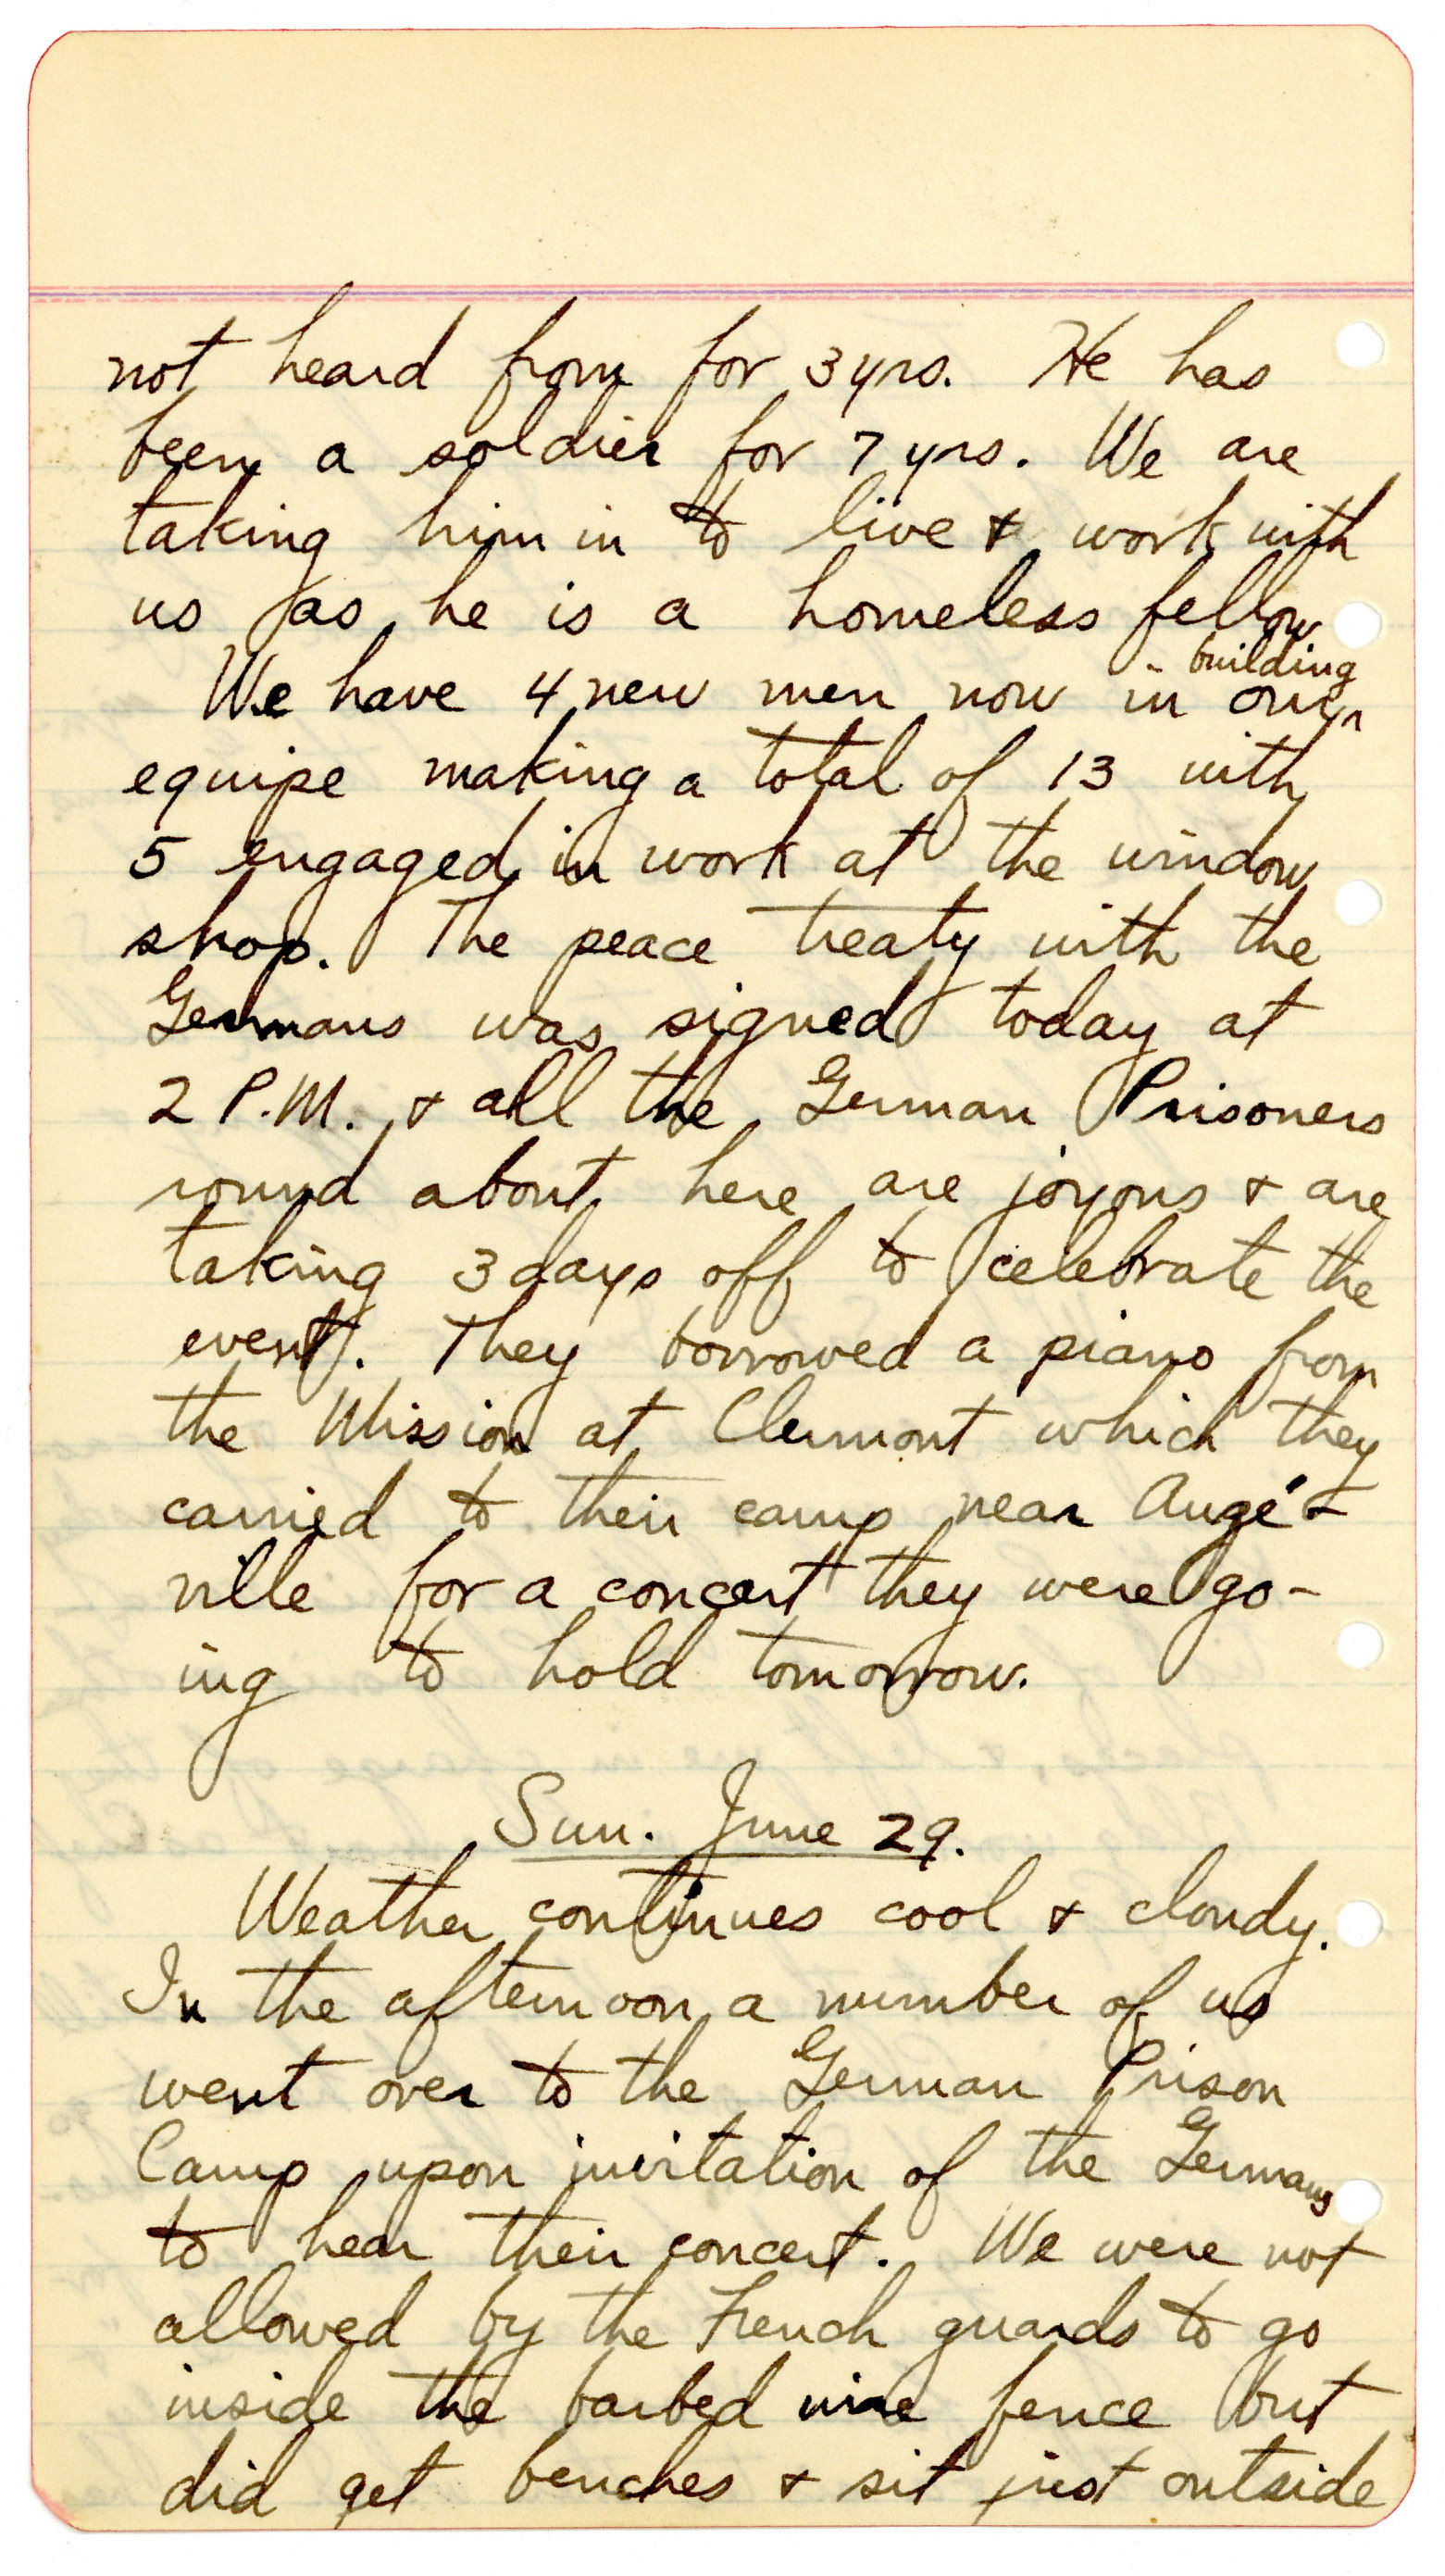 not heard from for 3 yrs. He has
been a soldier for 7 yrs. We are
taking him in to live & work with
us as he is a homeless fellow
building
We have 4 new men now in our
equipe making a total of 13 with
5 engaged in work at the window
shop. The peace treaty with the
Germans was signed today at
2 P.M. & all the German Prisoners
round about here are joyous & are
taking 3 days off to celebrate the
event. They borrowed a piano from
the Mission at Clermont which they
carried to their camp near Augé-
ville for a concert they were go-
ing to hold tomorrow.
Sun. June 29.
Weather continues cool & cloudy.
In the afternoon a number of us
went over to the German Prison
Camp upon invitation of the Germans
to hear their concert. We were not
allowed by the French guards to go
inside the barbed wire fence but
did get benches & sit just outside